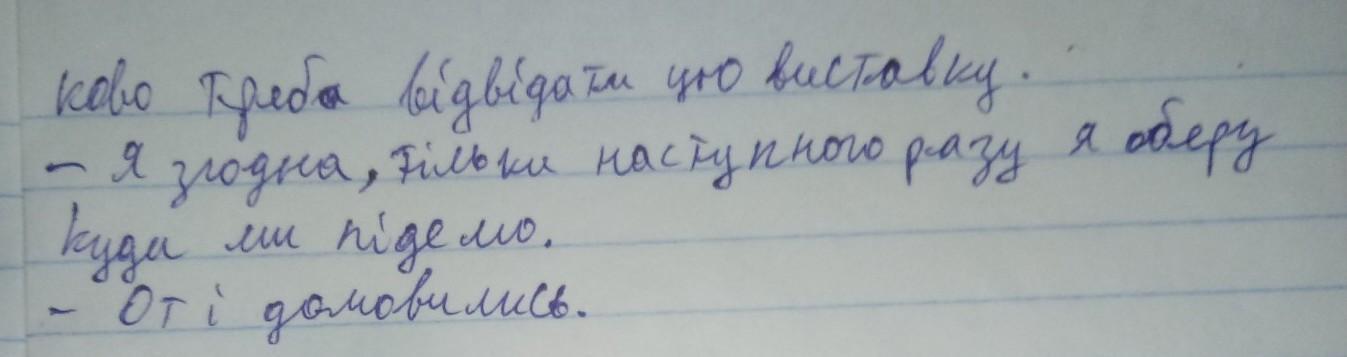 ково треба відвідати цю виставку.
– Я згодна, тільки наступного разу я оберу
куди ми підемо.
– От і домовились.